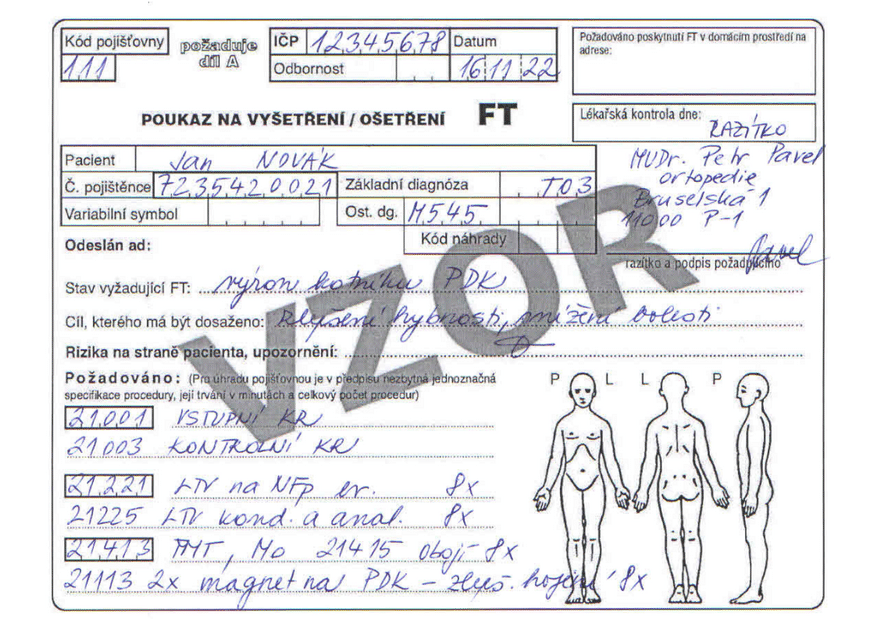 Kód pojišťovny požaduje díl A IČP 12345678 Datum
111 Odbornost 16 11 22
Požadováno poskytnutí FT v domácím prostředí na
adrese:
POUKAZ NA VYŠETŘENÍ / OŠETŘENÍ FT
Lékařská kontrola dne:
RAZÍTKO
MUDr. Petr Pavel
ortopedie
Bruselská 1
11000 P-1
Pavel
razítko a podpis požadujícího
Pacient Jan NOVÁK
Č. pojištěnce 7235420021 Základní diagnóza T03
Variabilní symbol Ost. dg. M545
Kód náhrady
Odeslán ad:
Stav vyžadující FT: výron kotníku PDK
Cíl, kterého má být dosaženo: zlepšení hybnosti, snížení bolesti
Rizika na straně pacienta, upozornění:
Požadováno: (Pro úhradu pojišťovnou je v předpisu nezbytná jednoznačná
specifikace procedury, její trvání v minutách a celkový počet procedur)
P L L P
21001 VSTUPNÍ KR
21003 KONTROLNÍ KR
21221 LTV na NFp er. 8x
21225 LTV kond. a anal. 8x
21413 TMT, Mo 21415 obojí 8x
21113 2x magnet na PDK – zlepš. hojení 8x
VZOR